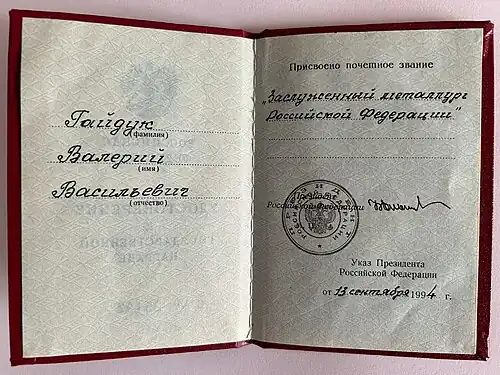 Гайдук
(фамилия)
Валерий
(имя)
Васильевич
(отчество)
Присвоено почетное звание
„Заслуженный металлург
Российской Федерации"
Президент
Российской Федерации
Указ Президента
Российской Федерации
от 13 сентября 1994 г.